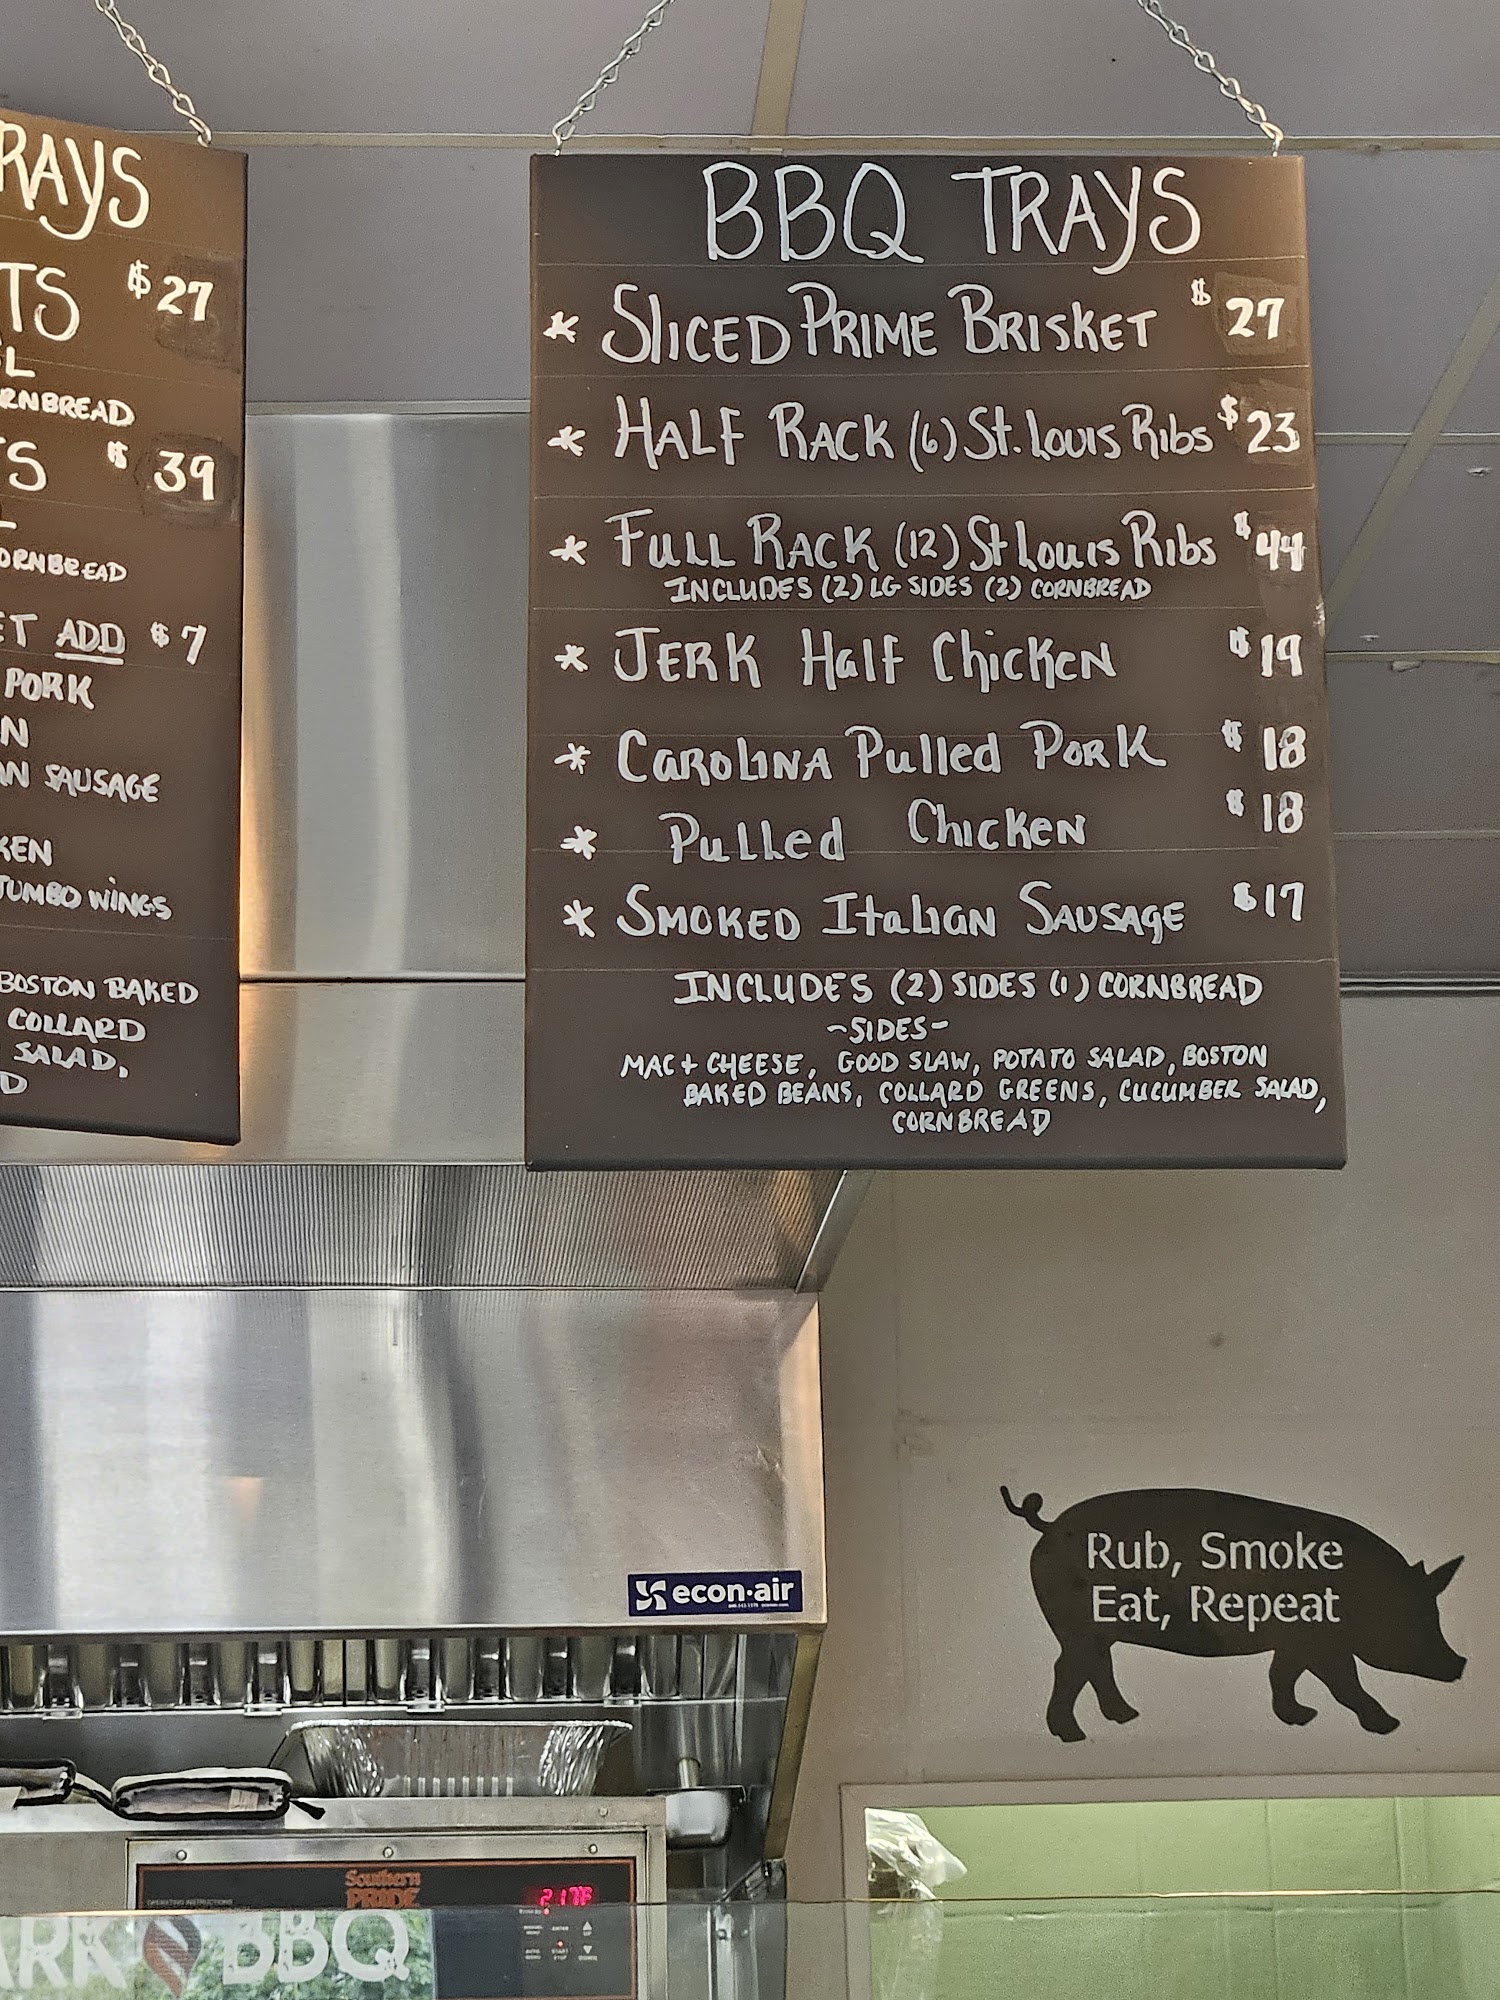 RAYS
TS $27
RNBREAD
TS $39
ORNBREAD
ET ADD $7
PORK
N
AN SAUSAGE
KEN
JUMBO WINGS
BOSTON BAKED
COLLARD
SALAD,
D
BBQ TRAYS
* SLICED PRIME BRISKET $27
* HALF RACK (6) St. Louis Ribs $23
* FULL RACK (12) St Louis Ribs $44
INCLUDES (2) LG SIDES (2) CORNBREAD
* JERK Half Chicken $19
* CAROLINA Pulled PORK $18
* Pulled Chicken $18
* SMOKED Italian SAUSAGE $17
INCLUDES (2) SIDES (1) CORNBREAD
~SIDES~
MAC + CHEESE, GOOD SLAW, POTATO SALAD, BOSTON
BAKED BEANS, COLLARD GREENS, CUCUMBER SALAD,
CORNBREAD
Rub, Smoke
Eat, Repeat
econ-air
Southern
PRIDE
OPERATING INSTRUCTIONS
217F
ARK BBQ